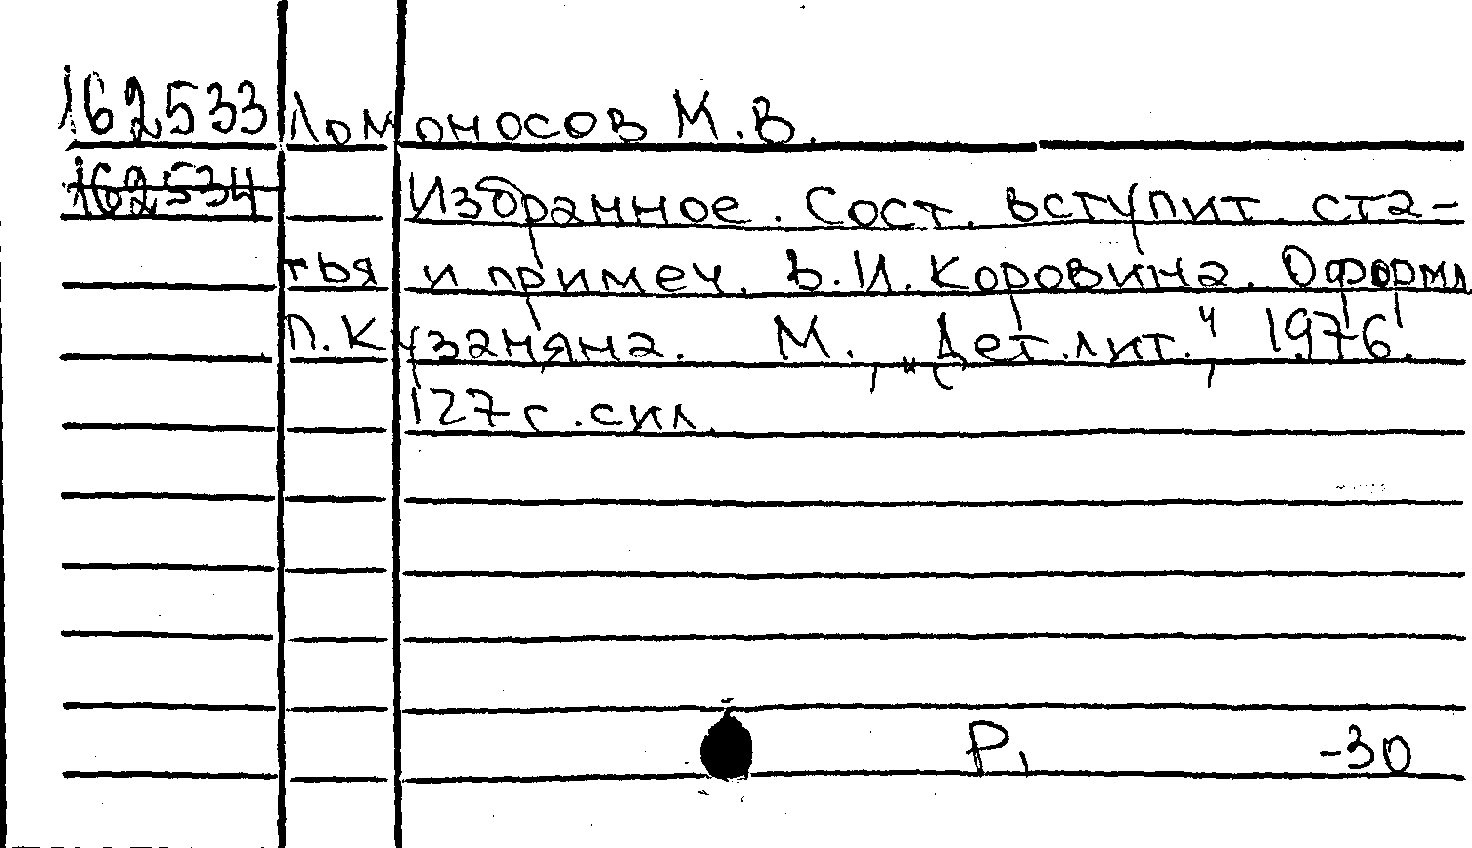 162533 Ломоносов М.В.
162534 Избранное. Сост. вступит. ста-
тья и примеч. В.И. Коровина. Оформл
П. Кузаняна. М., "Дет.лит.", 1976.
127 с. с ил.
Р1 -30